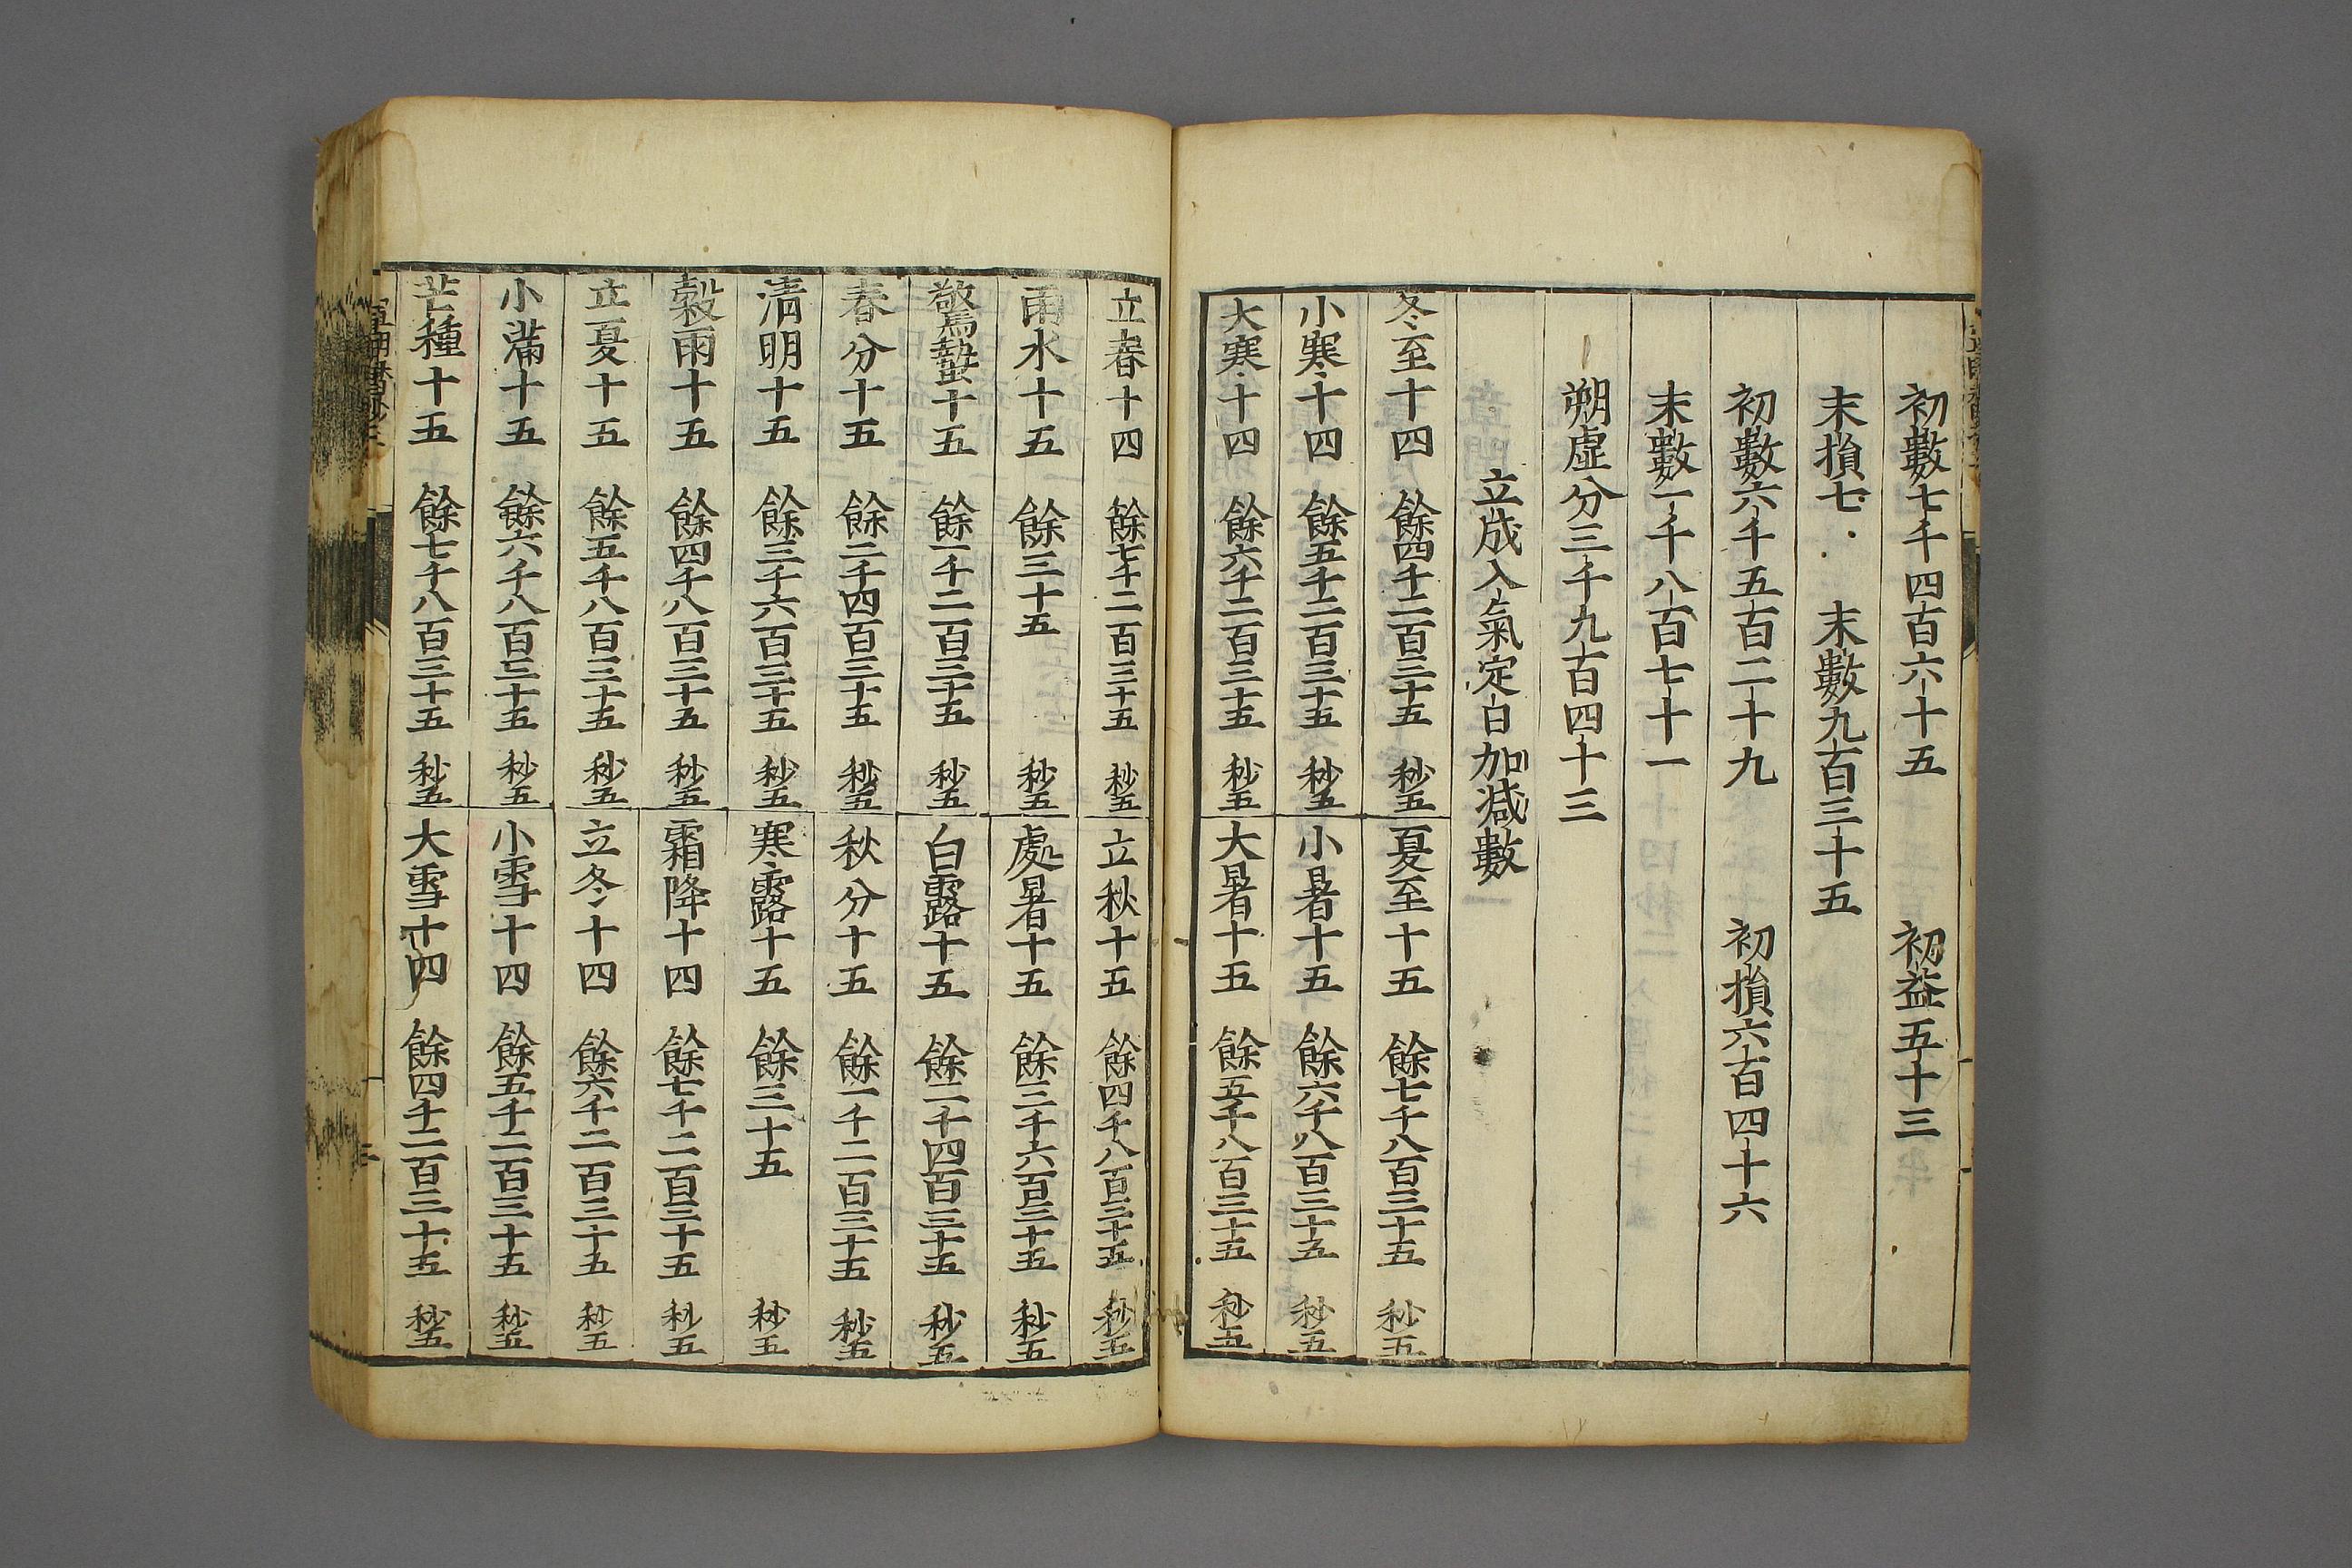 初數七千四百六十五 初益五十三
末損七 末數九百三十五
初數六千五百二十九 初損六百四十六
末數一千八百七十一
朔虛分三千九百四十三
立成入氣定日加減數
冬至十四 餘四千二百三十五 秒五 夏至十五 餘七千八百三十五 秒五
小寒十四 餘五千二百三十五 秒五 小暑十五 餘六千八百三十五 秒五
大寒十四 餘六千二百三十五 秒五 大暑十五 餘五千八百三十五 秒五
立春十四 餘七千二百三十五 秒五 立秋十五 餘四千八百三十五 秒五
雨水十五 餘三十五 秒五 處暑十五 餘三千六百三十五 秒五
驚蟄十五 餘一千二百三十五 秒五 白露十五 餘二千四百三十五 秒五
春分十五 餘二千四百三十五 秒五 秋分十五 餘一千二百三十五 秒五
清明十五 餘三千六百三十五 秒五 寒露十五 餘三十五 秒五
穀雨十五 餘四千八百三十五 秒五 霜降十四 餘七千二百三十五 秒五
立夏十五 餘五千八百三十五 秒五 立冬十四 餘六千二百三十五 秒五
小滿十五 餘六千八百三十五 秒五 小雪十四 餘五千二百三十五 秒五
芒種十五 餘七千八百三十五 秒五 大雪十四 餘四千二百三十五 秒五